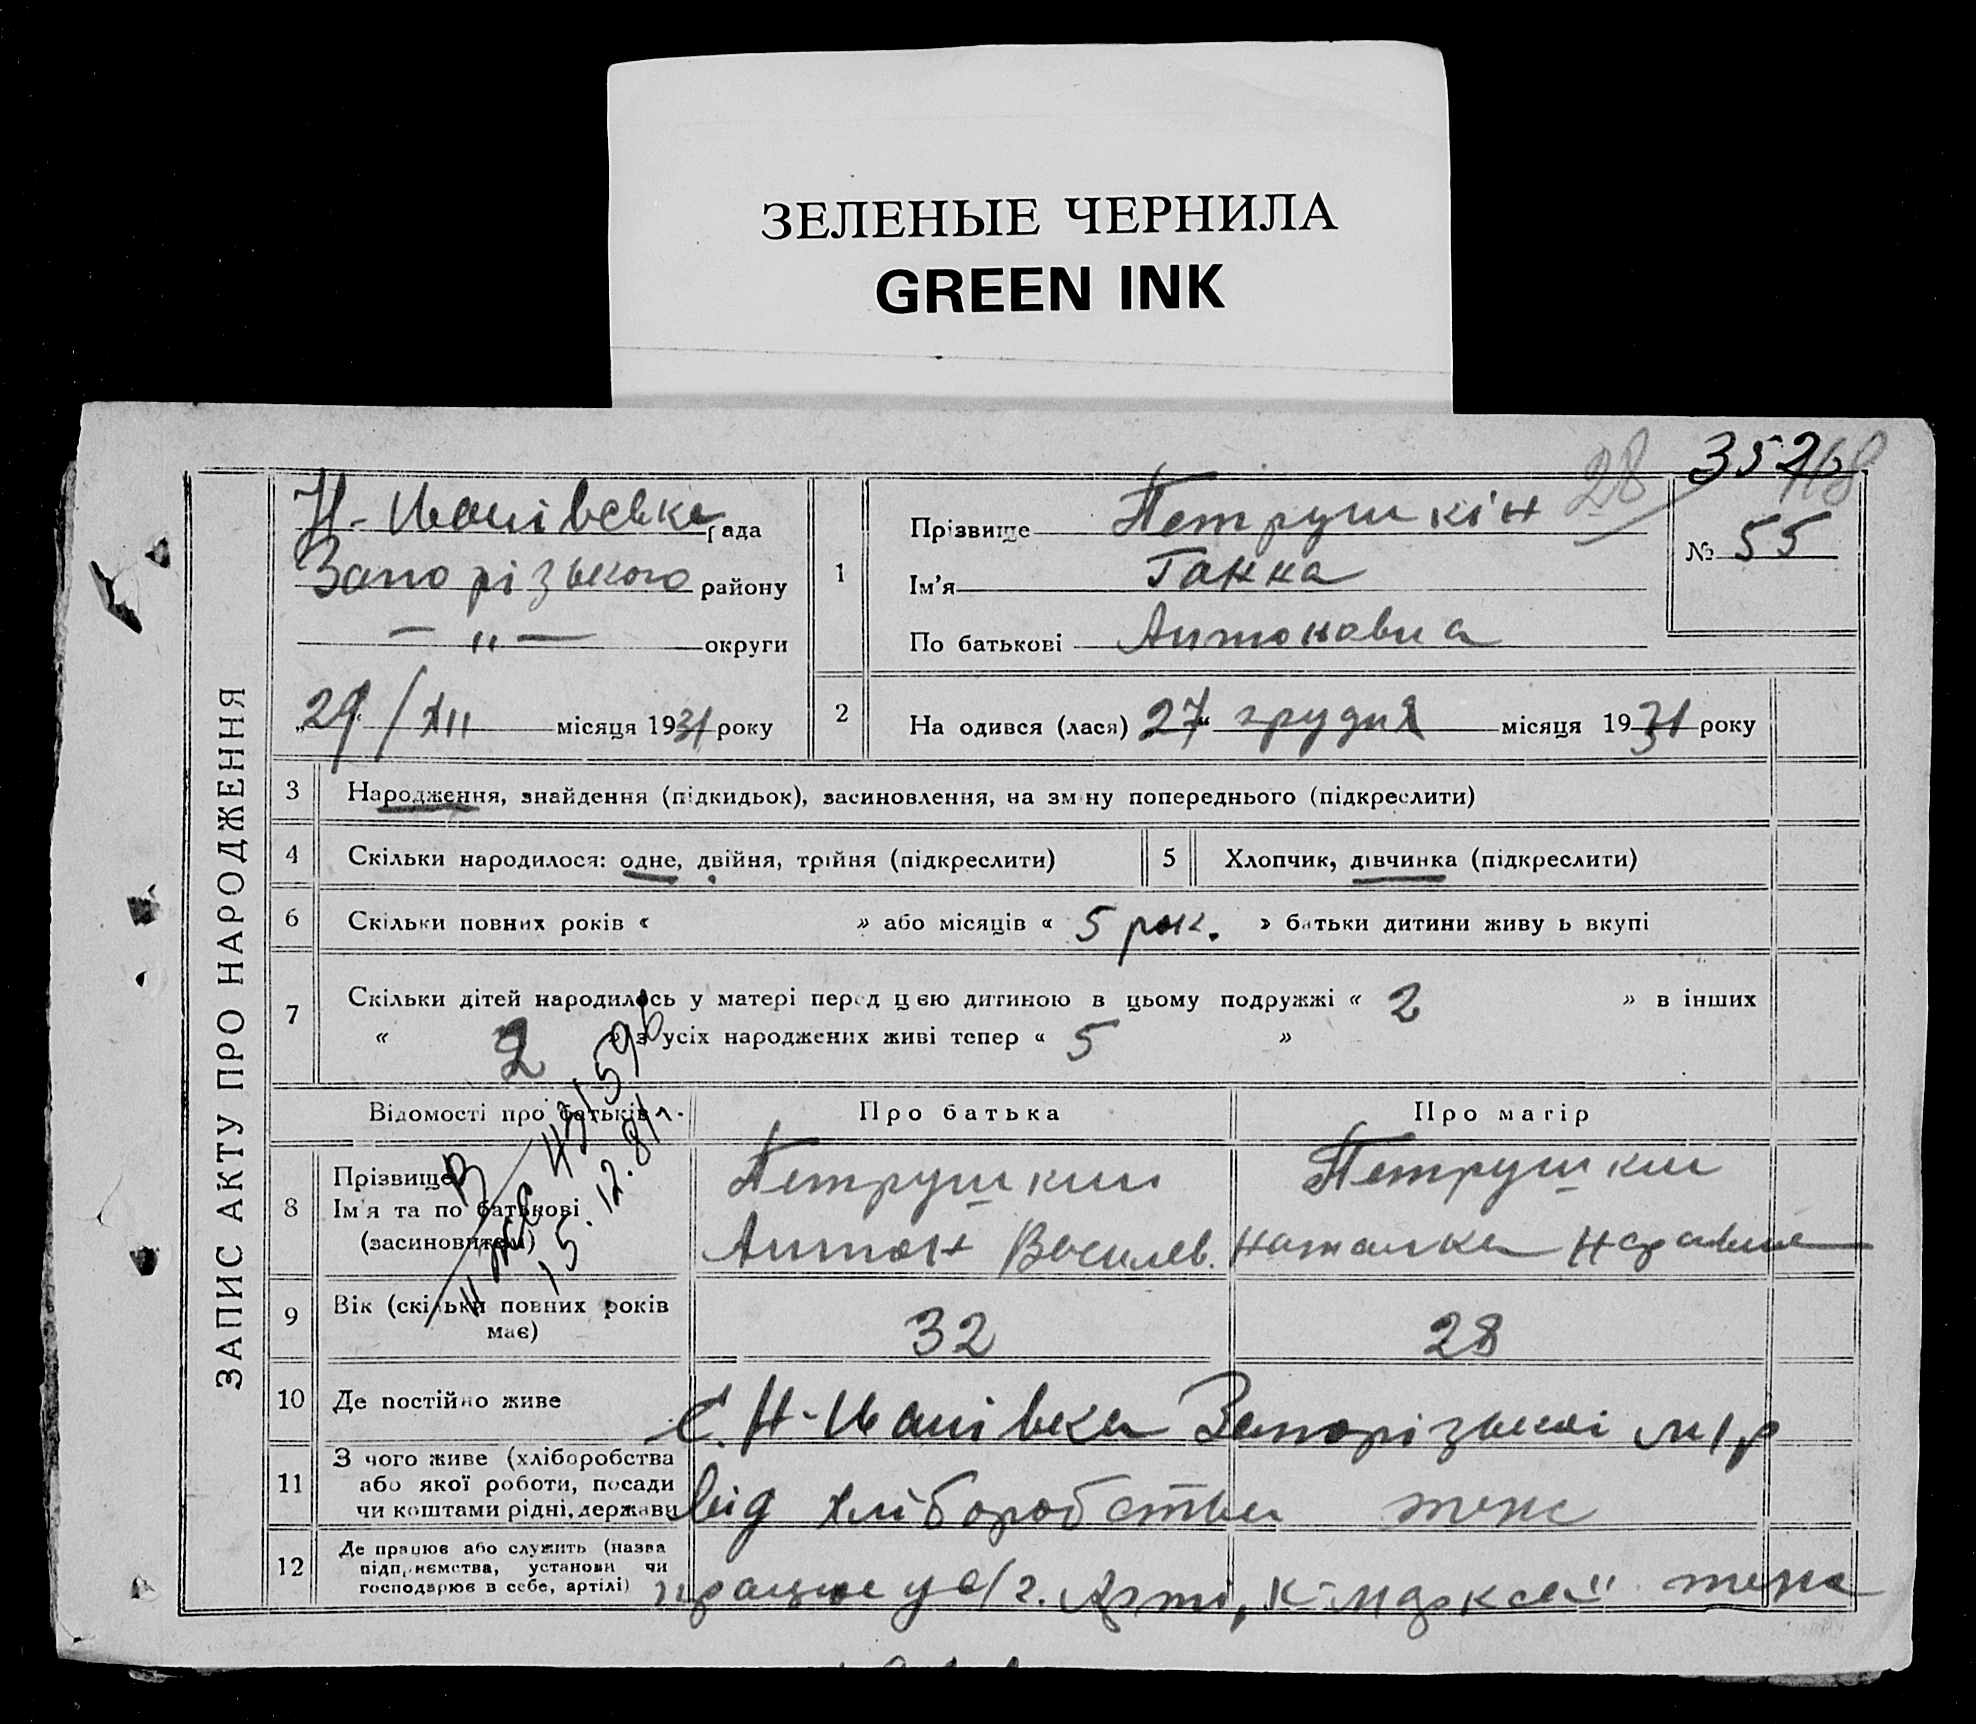 ЗЕЛЕНЫЕ ЧЕРНИЛА
GREEN INK
28 352
ЗАПИС АКТУ ПРО НАРОДЖЕННЯ
Н-Іванівська рада
Запорізького району
— „ — округи
„29“ / XII місяця 1931 року
1 Прізвище Петрушкін
Ім'я Ганна
По батькові Антоновна
№ 55
2 На одився (лася) „27“ грудня місяця 1931 року
3 Народження, знайдення (підкидьок), засиновлення, на зміну попереднього (підкреслити)
4 Скільки народилося: одне, двійня, трійня (підкреслити)
5 Хлопчик, дівчинка (підкреслити)
6 Скільки повних років « » або місяців « 5 рок. » батьки дитини живу ь вкупі
7 Скільки дітей народилось у матері перед цією дитиною в цьому подружжі « 2 » в інших
« 2 » з усіх народжених живі тепер « 5 »
Відомості про батьків Про батька Про матір
15.12.81г.
8 Прізвище
Ім'я та по батькові
(засиновителі)
Петрушкин
Антон Василев.
Петрушкин
Наталка
9 Вік (скільки повних років
має)
32 28
10 Де постійно живе с. Н-Іванівка Запорізької м/р
11 З чого живе (хліборобства
або якої роботи, посади
чи коштами рідні, держави
від хліборобства теж
12 Де працює або служить (назва
підприємства, установи чи
господарює в себе, артілі)
працює у с/г. Арті, К-Маркса" теж